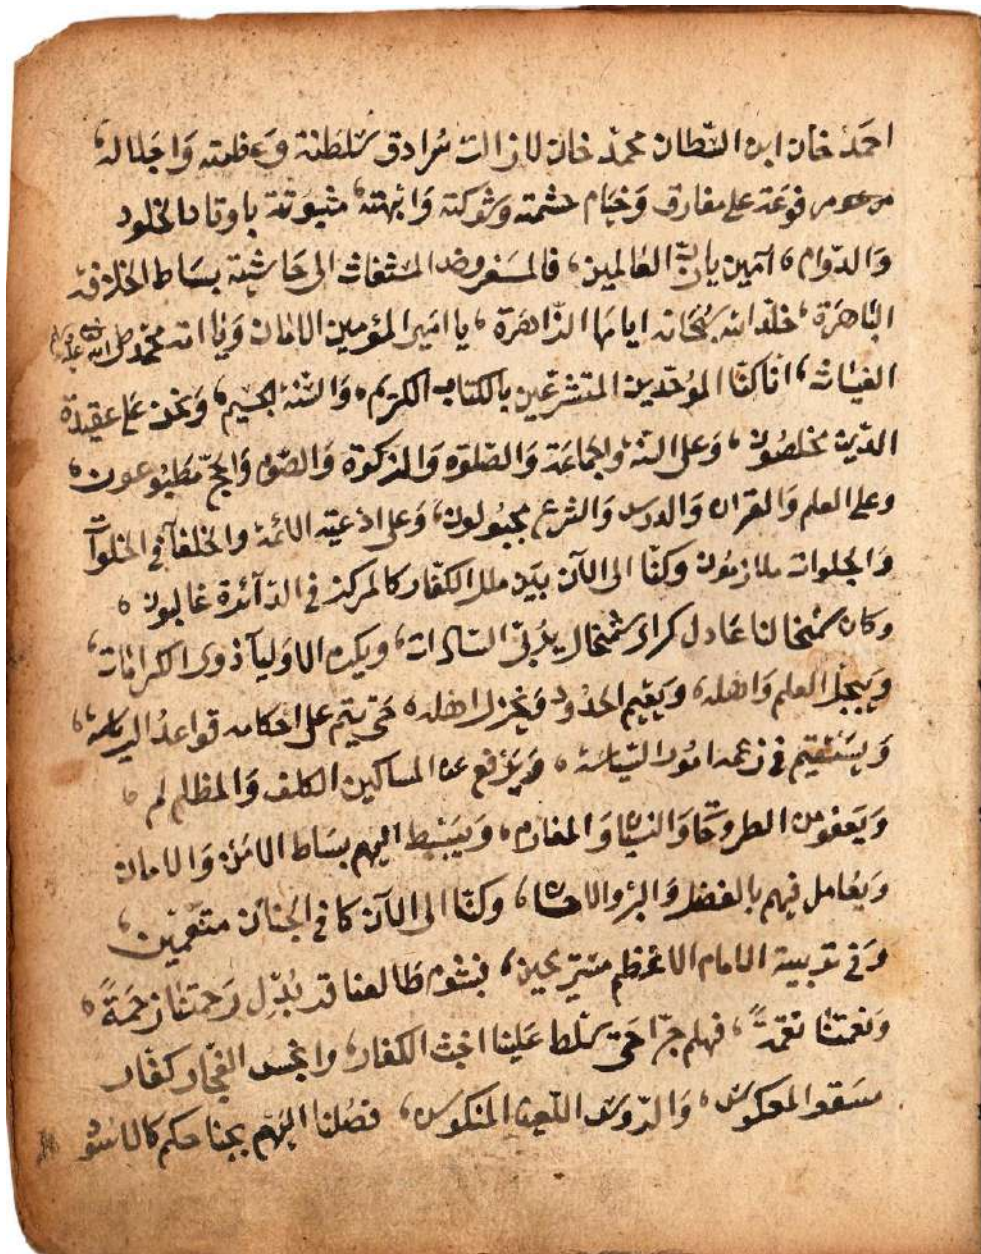 احمد خان ابن السلطان محمد خان لا زالت سرادق سلطنته وعظمته واجلاله،
مرفوعة على مفارق وخيام حشمته وشوكته وابهته، مثبوتة باوتاد الخلود
والدوام، امين يا رب العالمين، فالمفروض المستغاث الى حاشية بساط الخلافة
الباهرة، خلد الله سبحانه ايامها الزاهرة، يا امير المؤمنين الامان ويا امة محمد صلى الله عليه وسلم
الغياث، انا كنا الموحدين المتشرعين بالكتاب الكريم، والسنة الجسيم، ونحن على عقيدة
الدين مخلصون، وعلى السنة والجماعة والصلوة والزكوة والصوم والحج مطبوعون،
وعلى العلم والقران والدرس والشرع مجبولون، وعلى ادعية الائمة والخلفآء في الخلوات
والجلوات ملازمون وكنا الى الآن بين ملل الكفار كالمركز في الدآئرة غالبون،
وكان شمخالنا عادل كراى شمخال يربى السادات، ويكرم الاوليآء ذوى الكرامات،
ويبجل العلم واهله، ويقيم الحدود ويخزل اهله، حتى يتم على احكامه قواعد الرياسة،
ويستقيم في زعمه امور السياسة، ويرفع عن المساكين الكلف والمظالم
ويعفو من الطروحات والمغارم، ويبسط اليهم بساط الامن والامان
ويعامل فيهم بالفضل والبر والاحسان، وكنا الى الآن كنا في الجنان متنعمين،
وفي تربية الامام الاعظم مستريحين، فبشوم طالعنا قد بدل رحمتنا زحمة،
ونعمتنا نقمة، فهلم جرا حتى سلط علينا اخبث الكفار، وانجس الفجار كفار
مسقو المعكوس، والروس اللعين المنكوس، فصلنا اليهم بجناحكم كالاسود